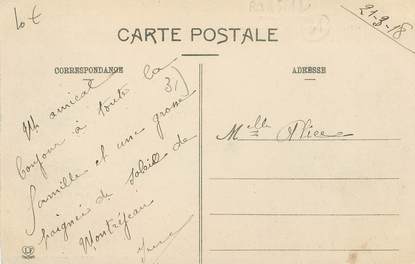 10€
21-3-18
CARTE POSTALE
CORRESPONDANCE
ADRESSE
31)
Un amical
bonjour à toute la
famille et une grosse
poignée de soleil de
Montréjeau
Melle Alice